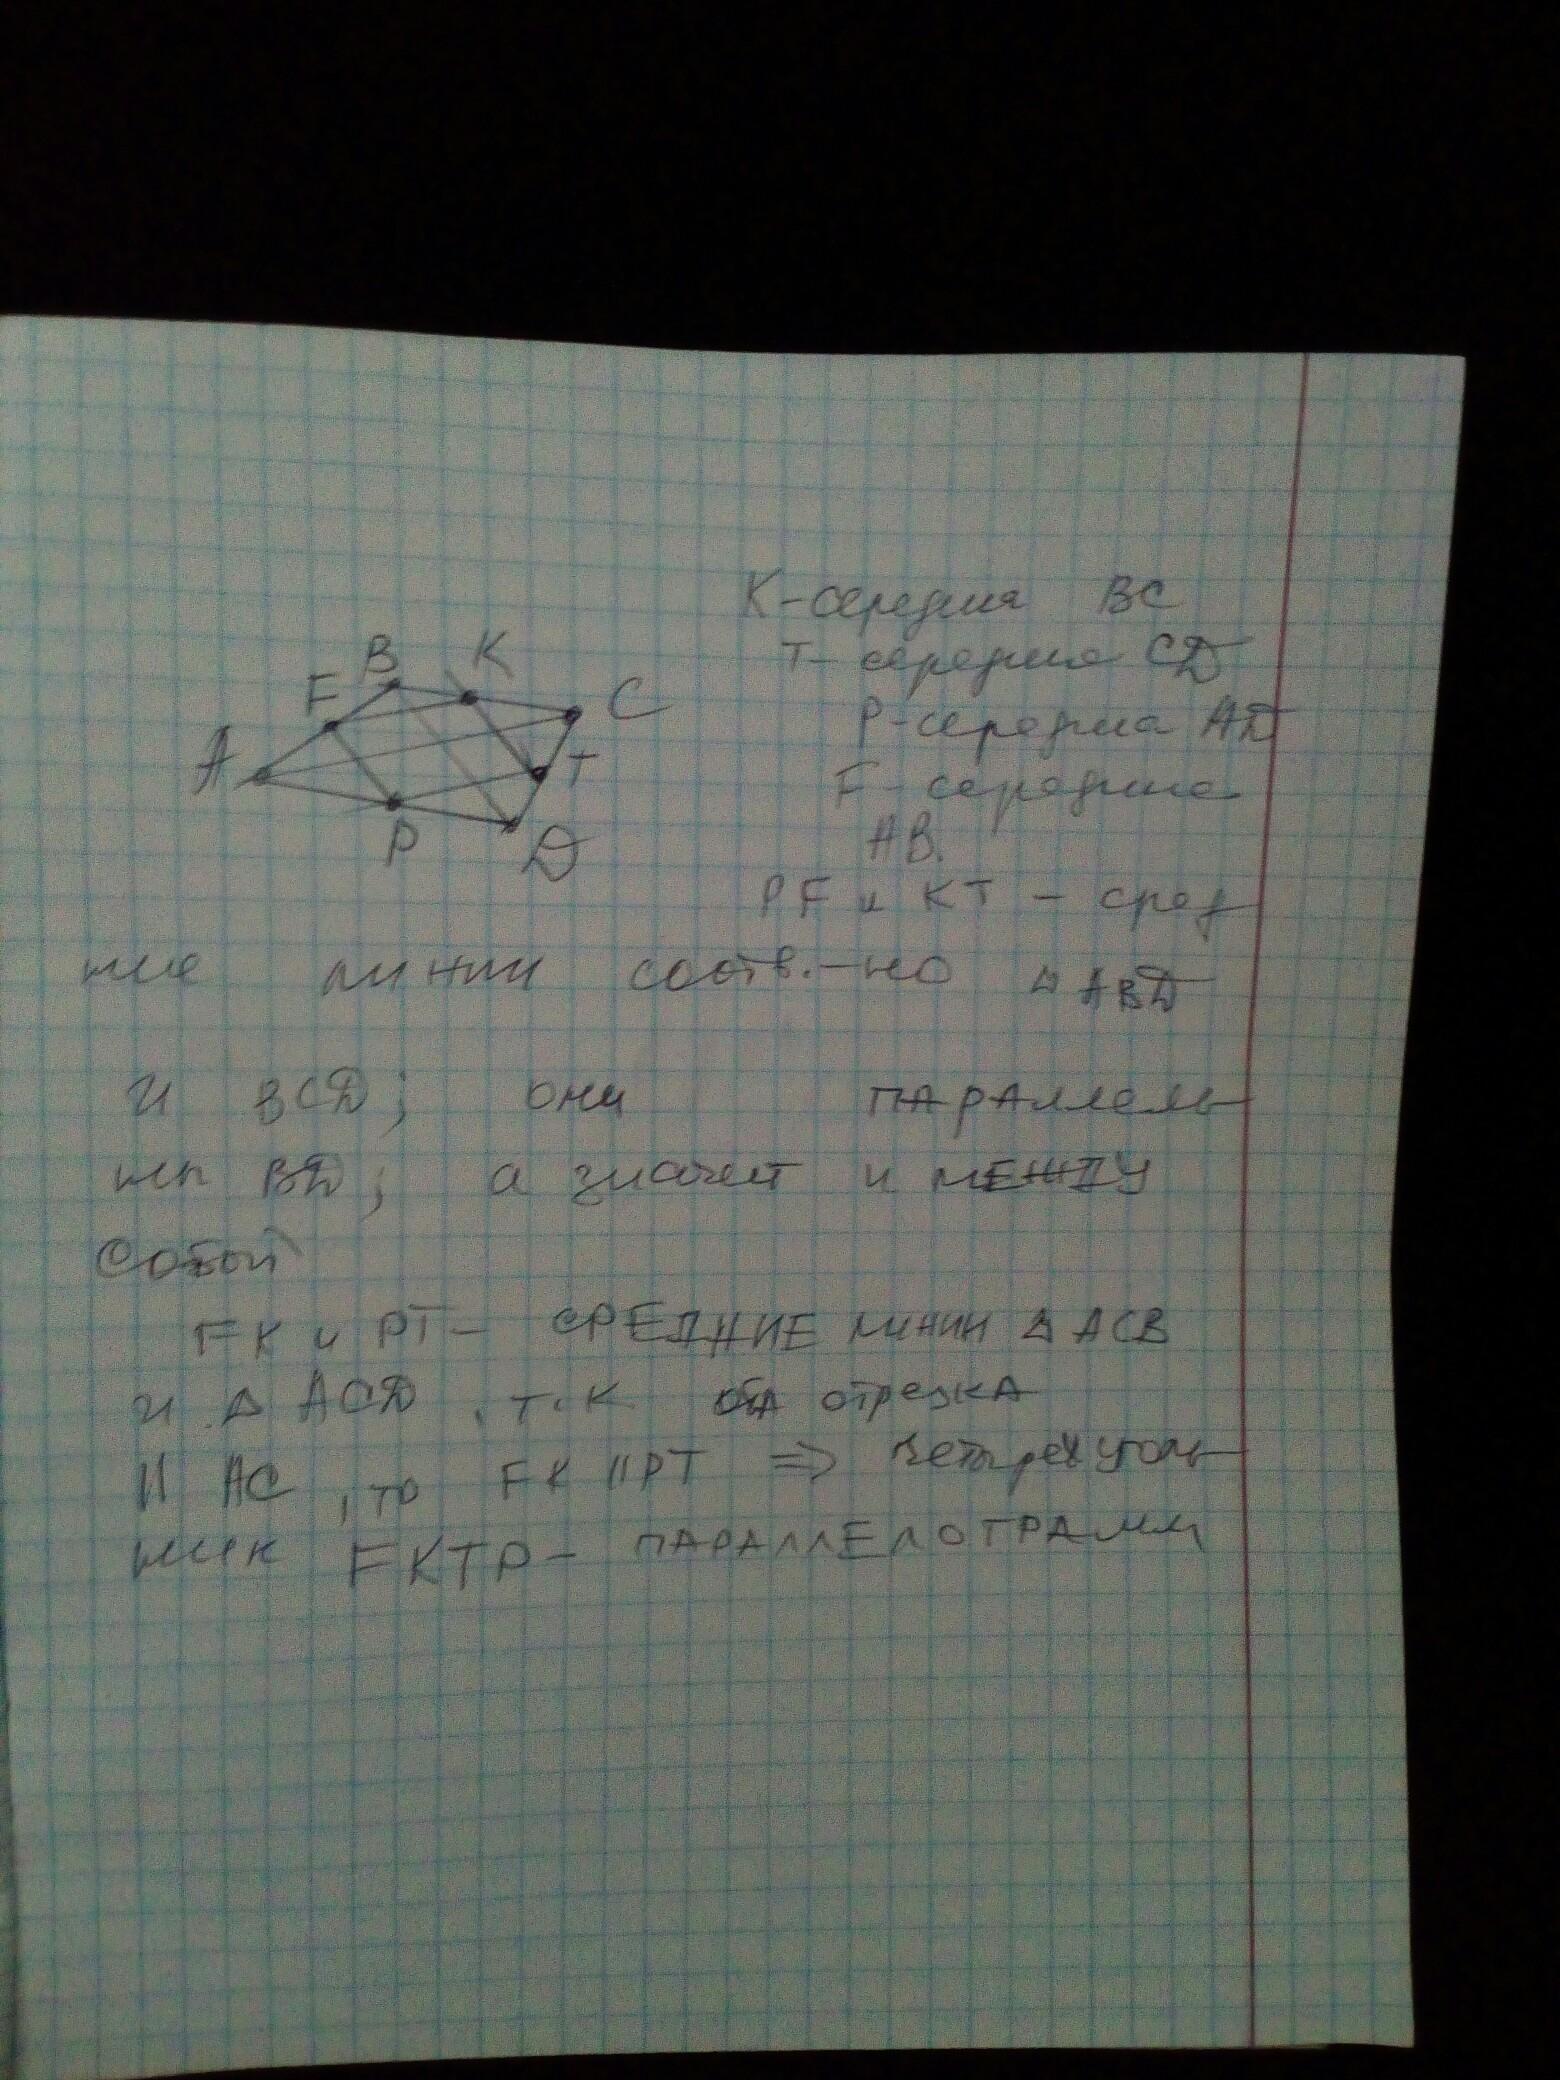 B K
F C
A T
P D
K-середина BC
T-середина CD
P-середина AD
F-середина
AB.
PF и KT - сред
ние линии соотв.-но △ABD
и BCD; они параллель
ны BD; а значит и между
собой
FK и PT- СРЕДНИЕ линии △ ACB
и △ ACD, т.к оба отрезка
|| AC, то FK || PT => четырёхуголь
ник FKTP- ПАРАЛЛЕЛОГРАММ